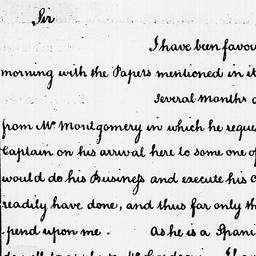 Sir
I have been favou
morning with the Papers mentioned in it
Several months a
from Mr Montgomery in which he reque
Captain on his arrival here to some one of
would do his Business and execute his C
readily have done, and thus far only th
pend upon me. As he is a Spani